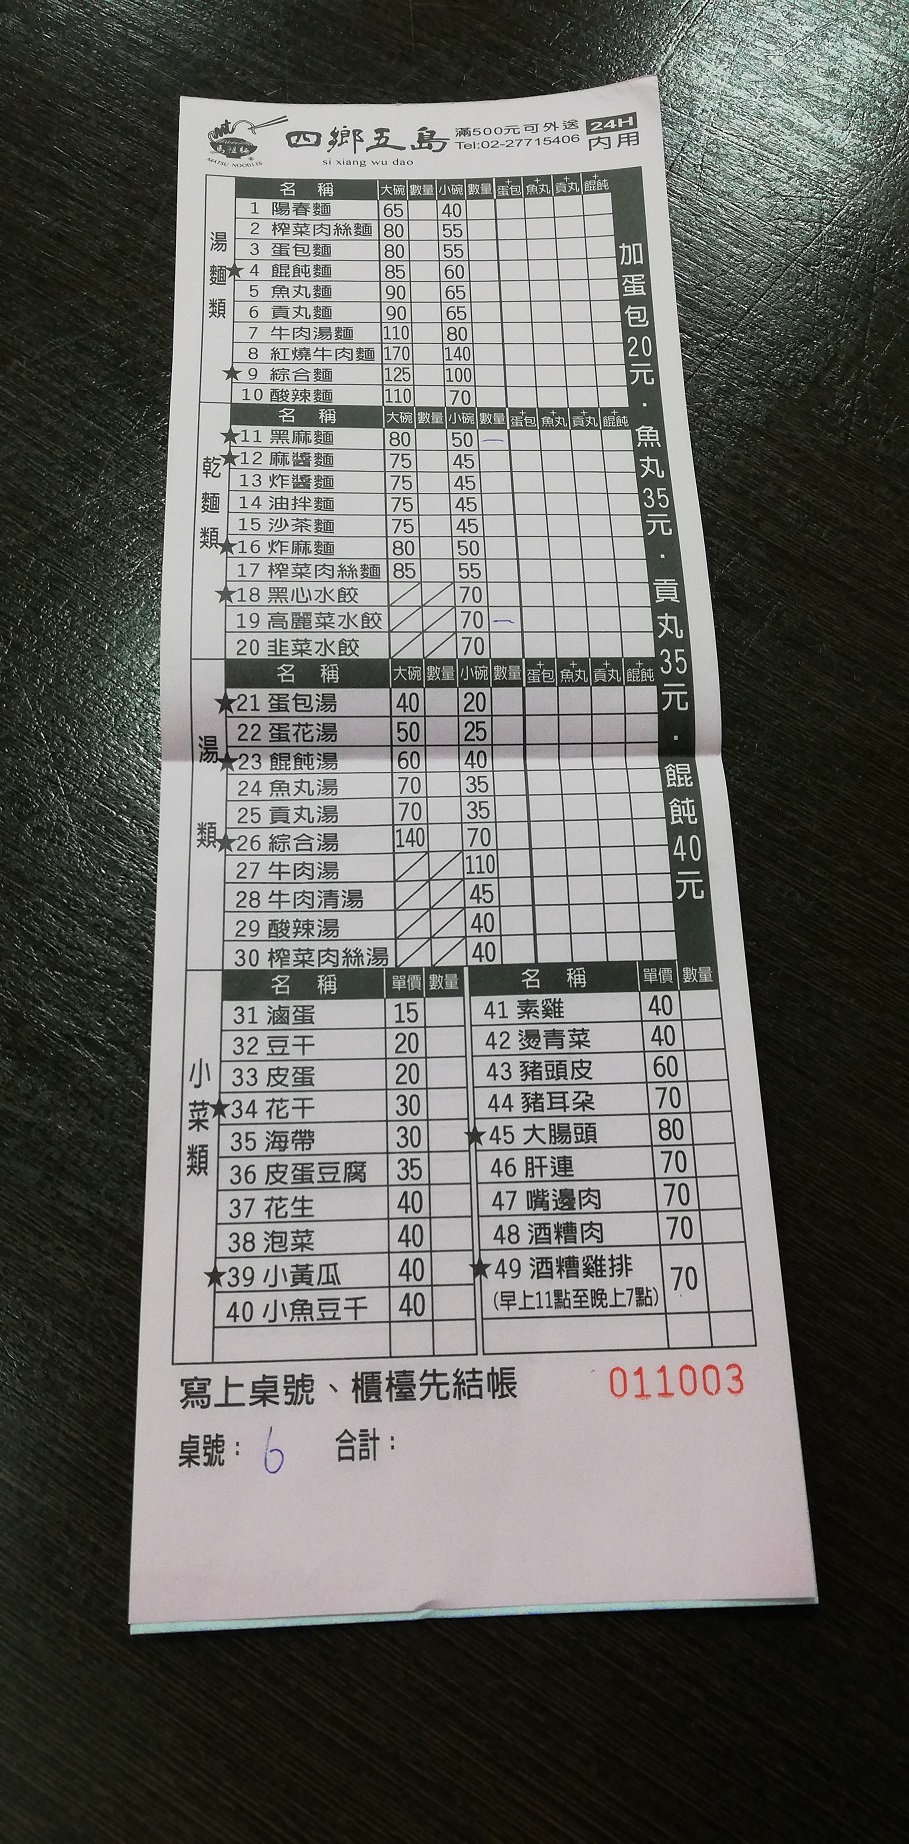 四鄉五島 滿500元可外送 24H
si xiang wu dao Tel:02-27715406 內用
MATSU NOODLES
湯麵類
名稱 大碗 數量 小碗 數量 +蛋包 +魚丸 +貢丸 +餛飩
1 陽春麵 65 40
2 榨菜肉絲麵 80 55
3 蛋包麵 80 55
★4 餛飩麵 85 60
5 魚丸麵 90 65
6 貢丸麵 90 65
7 牛肉湯麵 110 80
8 紅燒牛肉麵 170 140
★9 綜合麵 125 100
10 酸辣麵 110 70
乾麵類
名稱 大碗 數量 小碗 數量 +蛋包 +魚丸 +貢丸 +餛飩
★11 黑麻麵 80 50 一
★12 麻醬麵 75 45
13 炸醬麵 75 45
14 油拌麵 75 45
15 沙茶麵 75 45
★16 炸麻麵 80 50
17 榨菜肉絲麵 85 55
★18 黑心水餃 70
19 高麗菜水餃 70 一
20 韭菜水餃 70
湯類
名稱 大碗 數量 小碗 數量 +蛋包 +魚丸 +貢丸 +餛飩
★21 蛋包湯 40 20
22 蛋花湯 50 25
★23 餛飩湯 60 40
24 魚丸湯 70 35
25 貢丸湯 70 35
★26 綜合湯 140 70
27 牛肉湯 110
28 牛肉清湯 45
29 酸辣湯 40
30 榨菜肉絲湯 40
加蛋包20元·魚丸35元·貢丸35元·餛飩40元
小菜類
名稱 單價 數量
31 滷蛋 15
32 豆干 20
33 皮蛋 20
★34 花干 30
35 海帶 30
36 皮蛋豆腐 35
37 花生 40
38 泡菜 40
★39 小黃瓜 40
40 小魚豆干 40
名稱 單價 數量
41 素雞 40
42 燙青菜 40
43 豬頭皮 60
44 豬耳朵 70
★45 大腸頭 80
46 肝連 70
47 嘴邊肉 70
48 酒糟肉 70
★49 酒糟雞排 70
(早上11點至晚上7點)
寫上桌號、櫃檯先結帳 011003
桌號：6 合計：